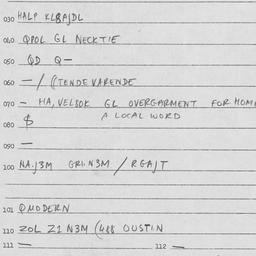 030 HALP KLBAJDL
040 QPOL GL NECKTIE
050 QD Q—
060 — / ((TENDEVARENDE
070 — HA, VELSOK GL OVERGARMENT FOR HOM
080 $ A LOCAL WORD
090 —
100 NA.J3M GRI.N3M / RGAJT
101 QMODERN
110 ZOL Z1 N3M (488 OUSTIN
111 — 112 —